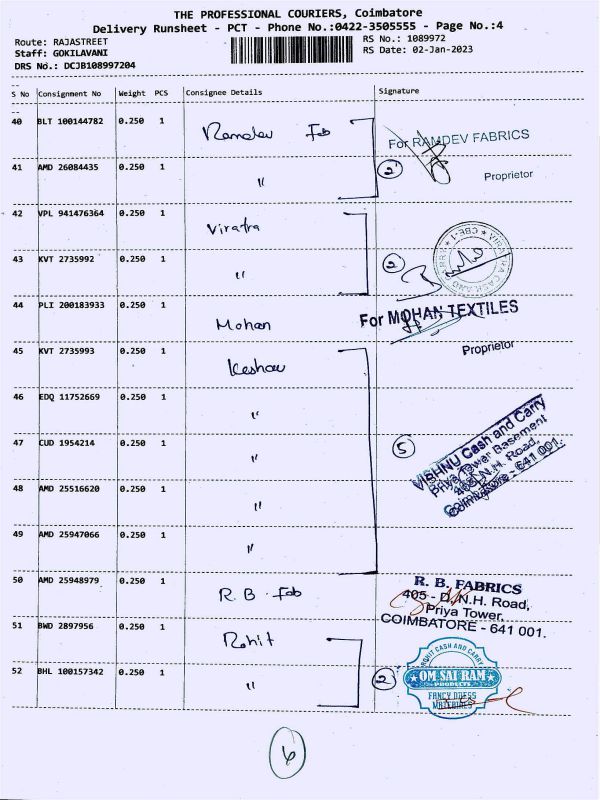 THE PROFESSIONAL COURIERS, Coimbatore
Delivery Runsheet - PCT - Phone No.:0422-3505555 - Page No.:4
Route: RAJASTREET
RS No.: 1089972
Staff: GOKILAVANI
RS Date: 02-Jan-2023
DRS No.: DCJB108997204
S No Consignment No Weight PCS Consignee Details Signature
40 BLT 100144782 0.250 1 Ramdev Fab
For RAMDEV FABRICS
Proprietor
41 AMD 26084435 0.250 1 " 2
42 VPL 941476364 0.250 1 Viratra
43 KVT 2735992 0.250 1 " 2
44 PLI 200183933 0.250 1 Mohan
For MOHAN TEXTILES
Proprietor
45 KVT 2735993 0.250 1 Keshav
46 EDQ 11752669 0.250 1 "
47 CUD 1954214 0.250 1 " 5
VISHNU Cash and Carry
Priya Tower Basement
D.N.H. Road,
Coimbatore - 641 001.
48 AMD 25516620 0.250 1 "
49 AMD 25947066 0.250 1 "
50 AMD 25948979 0.250 1 R.B. Fab
R. B. FABRICS
405 - D.N.H. Road,
Priya Tower,
COIMBATORE - 641 001.
51 BWD 2897956 0.250 1 Rohit
52 BHL 100157342 0.250 1 " 2
ROHIT CASH AND CARRY
OM SAI RAM
PRODUCTS
FANCY DRESS
MATERIALS
6